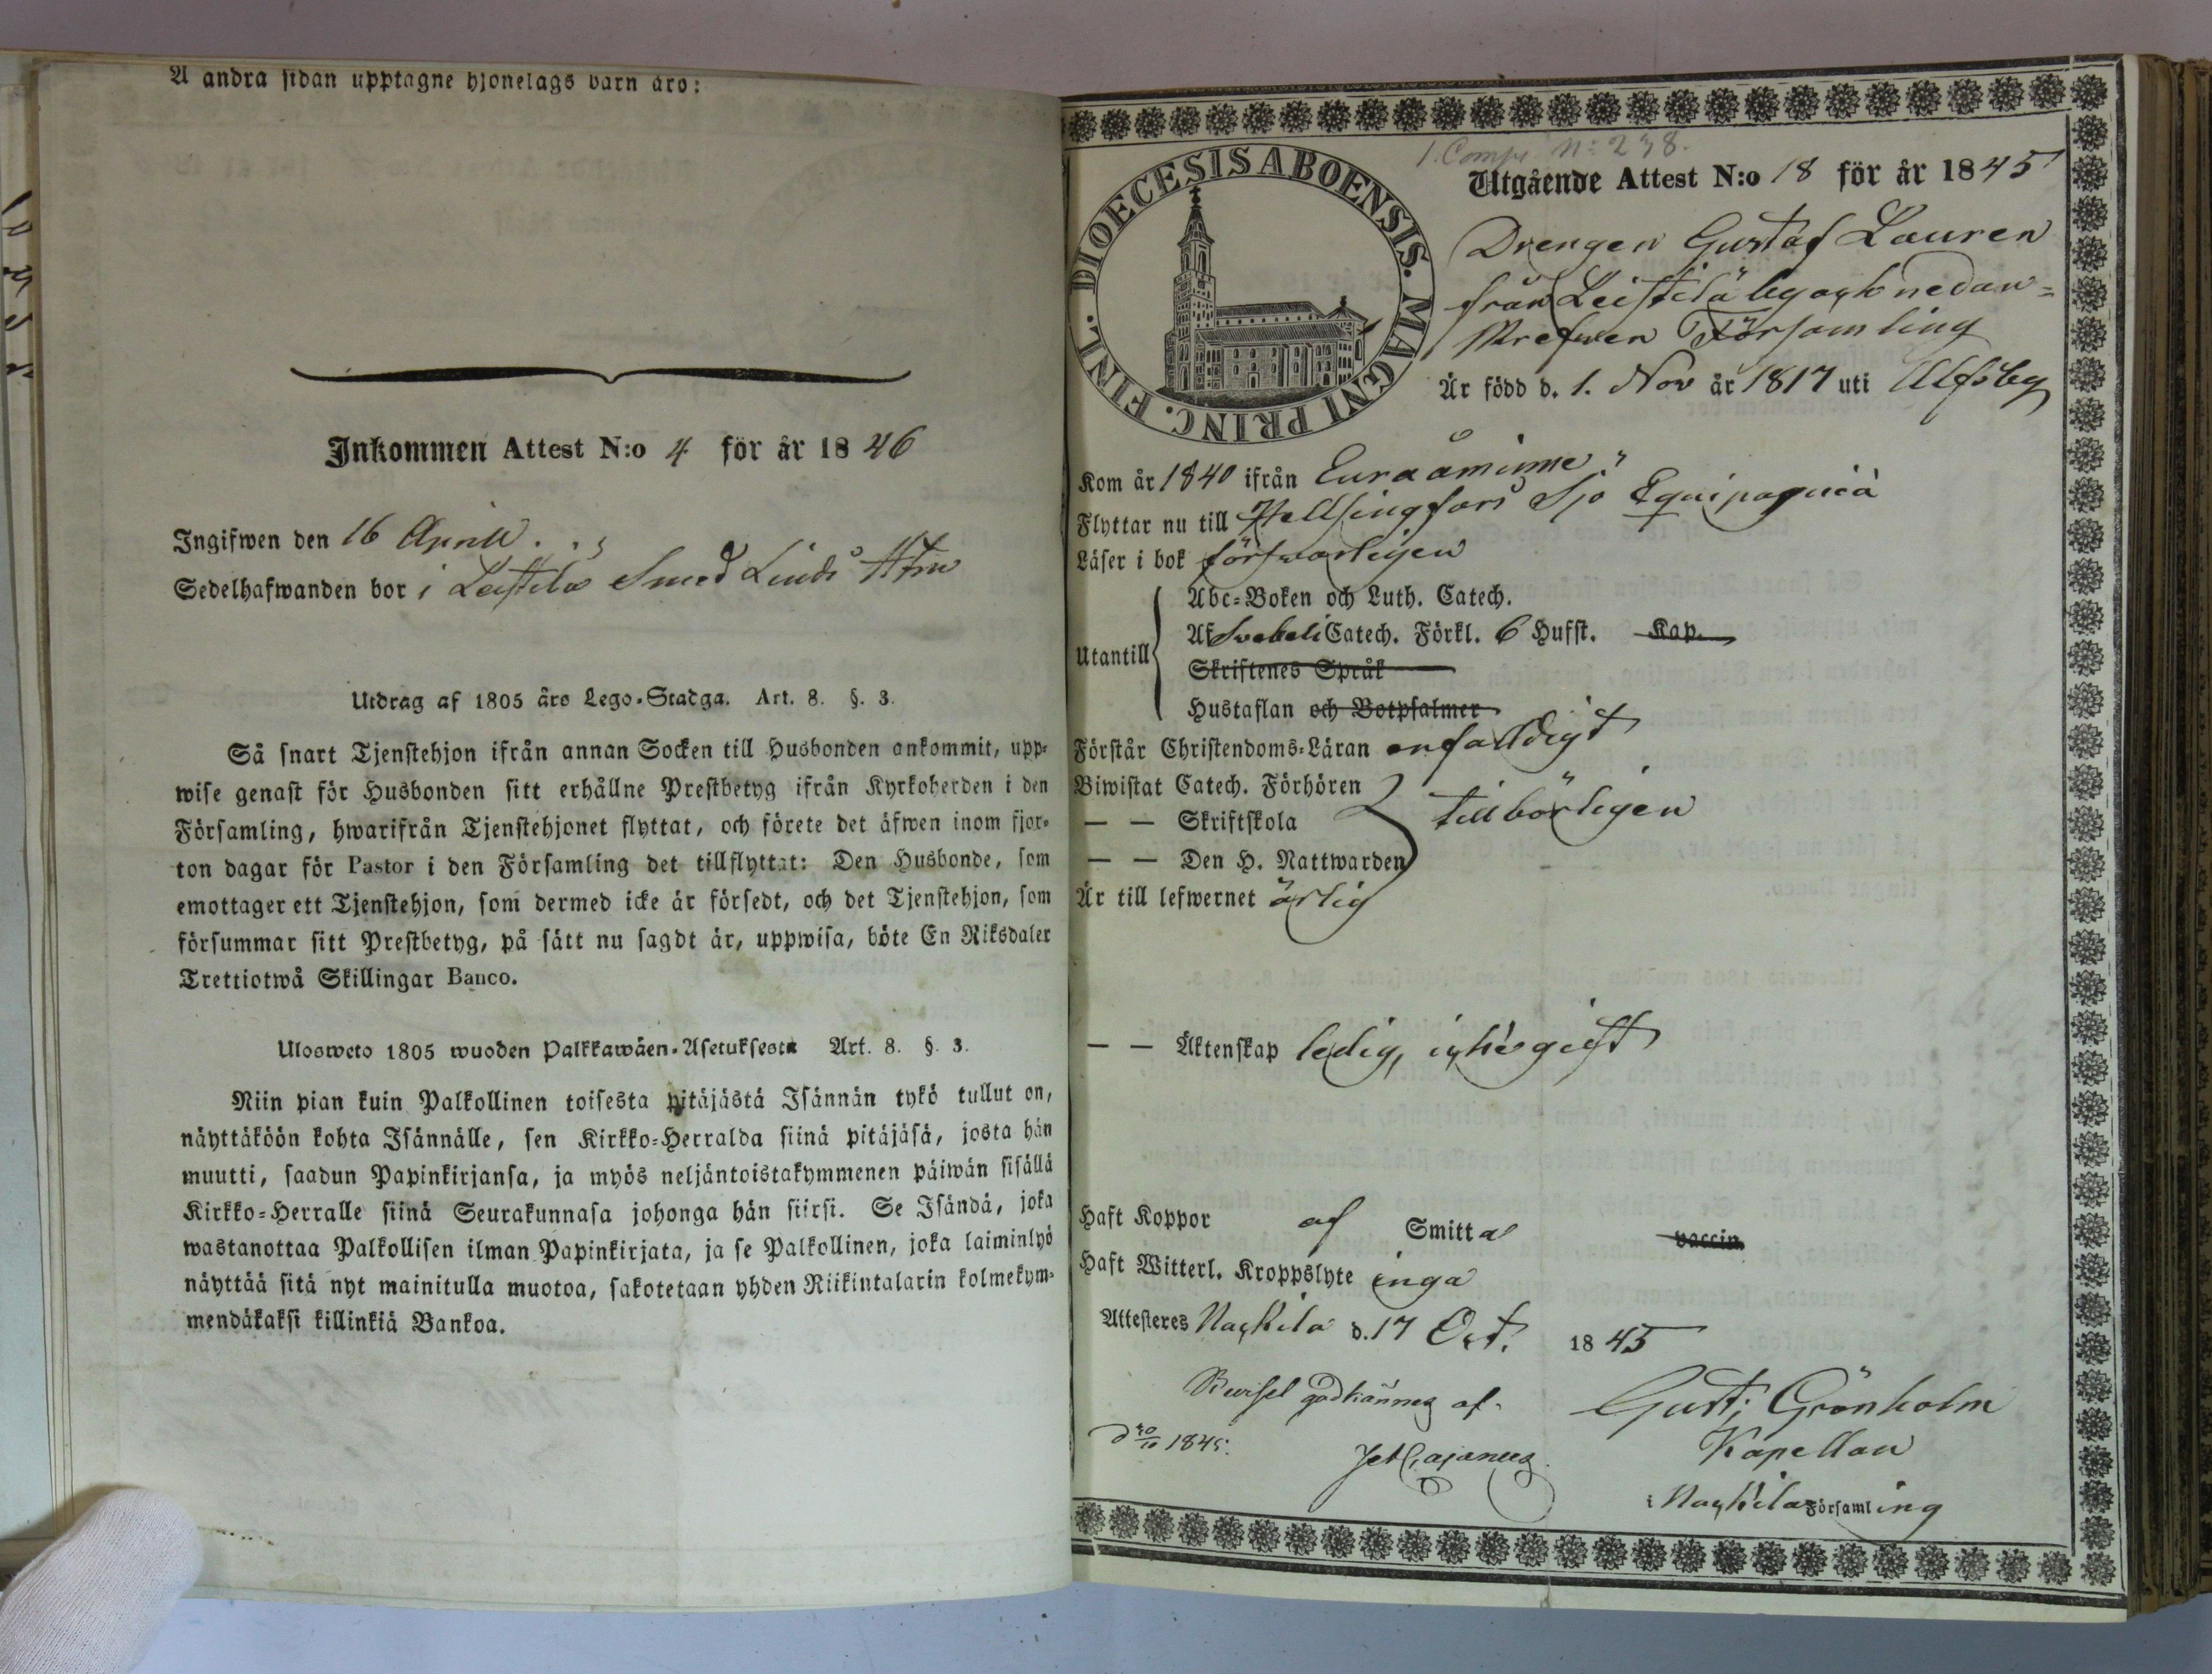 Å andra sidan upptagne hjonelags barn äro:
Inkommen Attest N:o 4 för år 1846
Ingifwen den 16 Aprill.
Sedelhafwanden bor i Leistila Smed Linds
Utdrag af 1805 års Lego-Stadga. Art. 8. §. 3.
Så snart Tjenstehjon ifrån annan Socken till Husbonden ankommit, upp-
wise genast för Husbonden sitt erhållne Prestbetyg ifrån Kyrkoherden i den
Församling, hwarifrån Tjenstehjonet flyttat, och förete det äfwen inom fjor-
ton dagar för Pastor i den Församling det tillflyttat: Den Husbonde, som
emottager ett Tjenstehjon, som dermed icke är försedt, och det Tjenstehjon, som
försummar sitt Prestbetyg, på sätt nu sagdt är, uppwisa, böte En Riksdaler
Trettiotwå Skillingar Banco.
Ulosweto 1805 wuoden Palkkawäen-Asetuksesta Art. 8. §. 3.
Niin pian kuin Palkollinen toisesta pitäjästä Isännän tykö tullut on,
näyttäköön kohta Isännälle, sen Kirkko-Herralda siinä pitäjäsä, josta hän
muutti, saadun Papinkirjansa, ja myös neljäntoistakymmenen päiwän sisällä
Kirkko-Herralle siinä Seurakunnasa johonga hän siirsi. Se Isändä, joka
wastanottaa Palkollisen ilman Papinkirjata, ja se Palkollinen, joka laiminlyö
näyttää sitä nyt mainitulla muotoa, sakotetaan yhden Riikintalarin kolmekym-
mendäkaksi killinkiä Bankoa.
DIOECESIS ABOENSIS. MAGNI PRINC. FINL.
1. Comp. N: 238.
Utgående Attest N:o 18 för år 1845
Drengen Gustaf Lauren
från Leistilä by och nedan-
skrefwen Församling
Är född d. 1. Nov år 1817 uti Ulfsby
Kom år 1840 ifrån Euraåminne
Flyttar nu till Hellsingfors Sjö Equipagiet
Läser i bok förswarligen
Utantill
Abc-Boken och Luth. Catech.
Af Svebeli Catech. Förkl. 6 Hufst. Kap.
Skriftenes Språk
Hustaflan och Botpsalmer
Förstår Christendoms-Läran enfaldigt
Biwistat Catech. Förhören
— — Skriftskola tillbörligen
— — Den H. Nattwarden
Är till lefwernet ärlig
— — Äktenskap ledig, icke gift
Haft Koppor af Smitta vaccin
Haft Witterl. Kroppslyte inga
Attesteres Nackila d. 17 Oct. 1845
Gust: Grönholm
godkännes af
d 20/10 1845.
Kapellan
Cajanus
i Nackila Församling